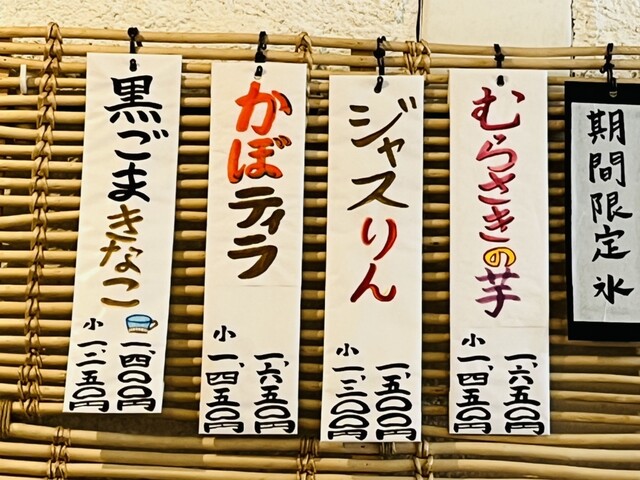 期間限定氷
むらさきの芋
一、六五〇円
小一、四五〇円
ジャスりん
一、五〇〇円
小一、三〇〇円
かぼティラ
一、六五〇円
小一、四五〇円
黒ごまきなこ
一、四〇〇円
小一、二五〇円